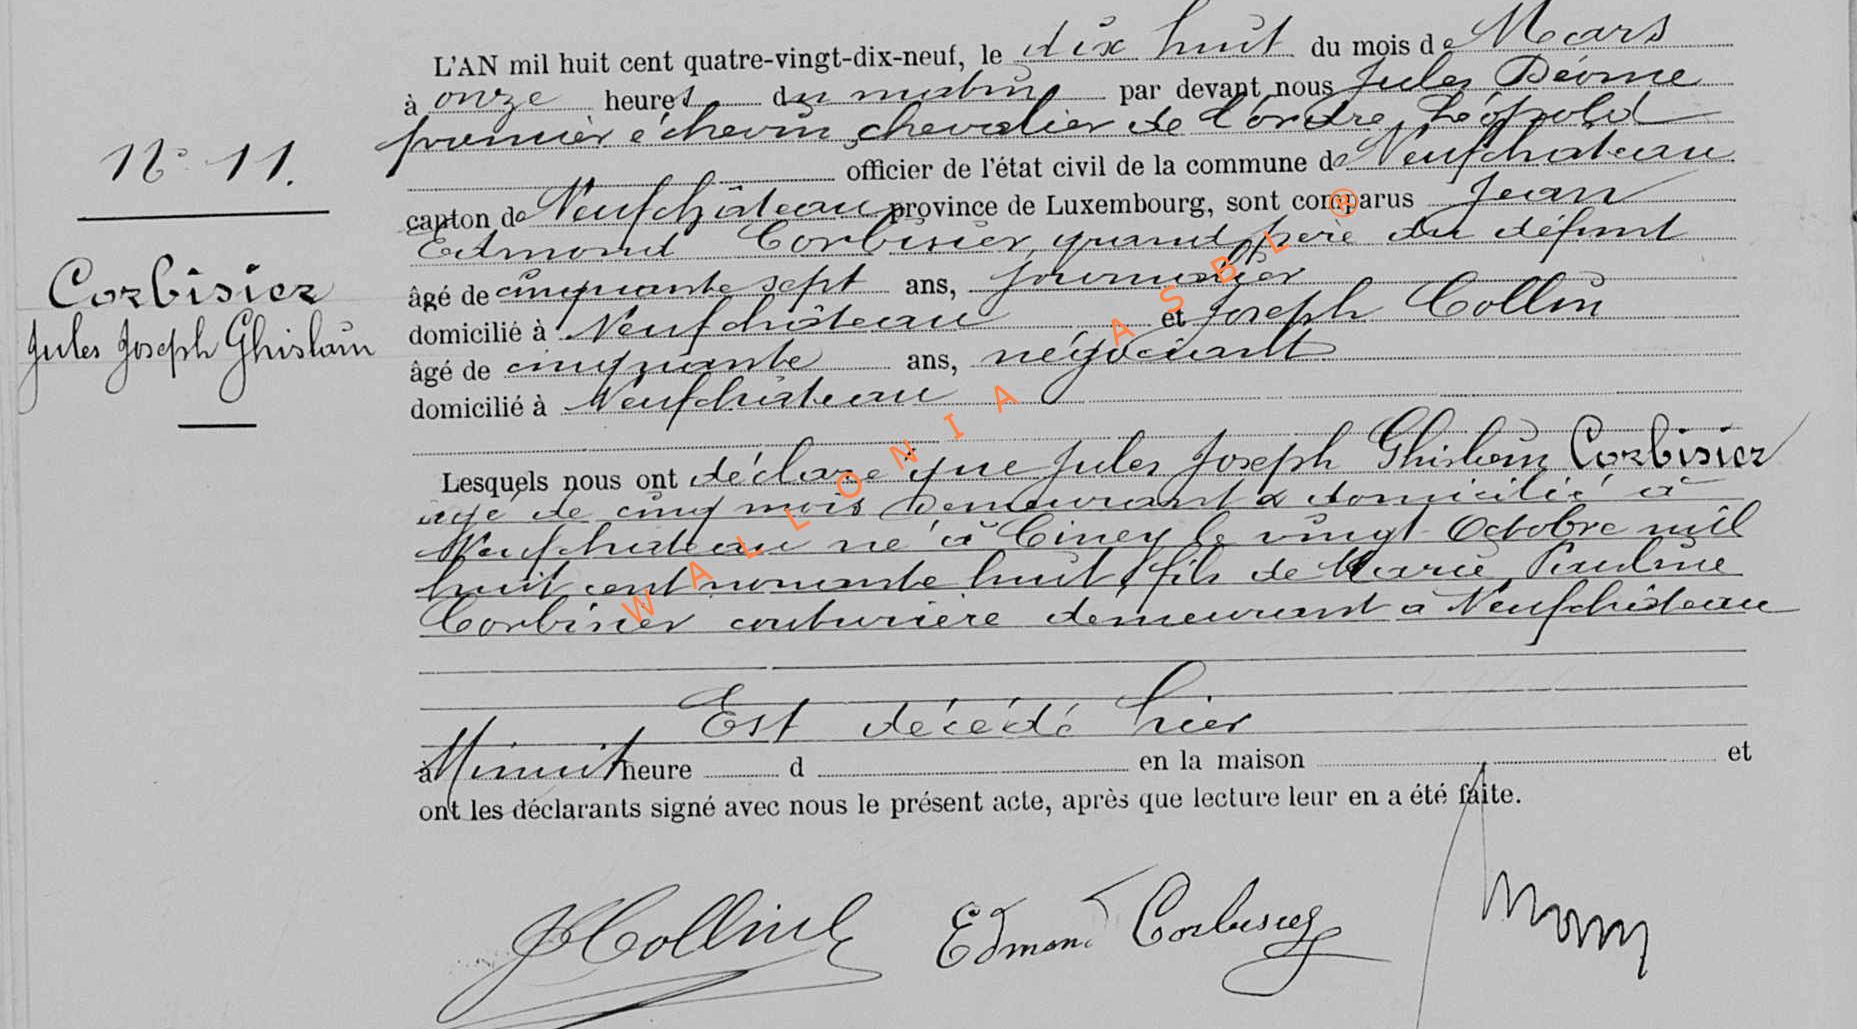 L'AN mil huit cent quatre-vingt-dix-neuf, le dix huit du mois de Mars
à onze heures du matin par devant nous Jules
premier échevin, chevalier de l'ordre Léopold
officier de l'état civil de la commune de Neufchateau
canton de Neufchâteau province de Luxembourg, sont comparus Jean
Edmond Corbisier, grand père du défunt
âgé de cinquante sept ans, journalier
domicilié à Neufchâteau et Joseph Collin
âgé de cinquante ans, négociant
domicilié à Neufchâteau
Lesquels nous ont déclaré que Jules Joseph Ghislain Corbisier
agé de cinq mois demeurant & domicilié à
Neufchateau né à Ciney le vingt Octobre mil
huit cent nonante huit, fils de Marie Pauline
Corbisier couturière demeurant à Neufchâteau
Est décédé hier
à Minuit heure d en la maison et
ont les déclarants signé avec nous le présent acte, après que lecture leur en a été faite.
N° 11.
Corbisier
Jules Joseph Ghislain
Edmond Corbisier
WALLONIA ASBL ®